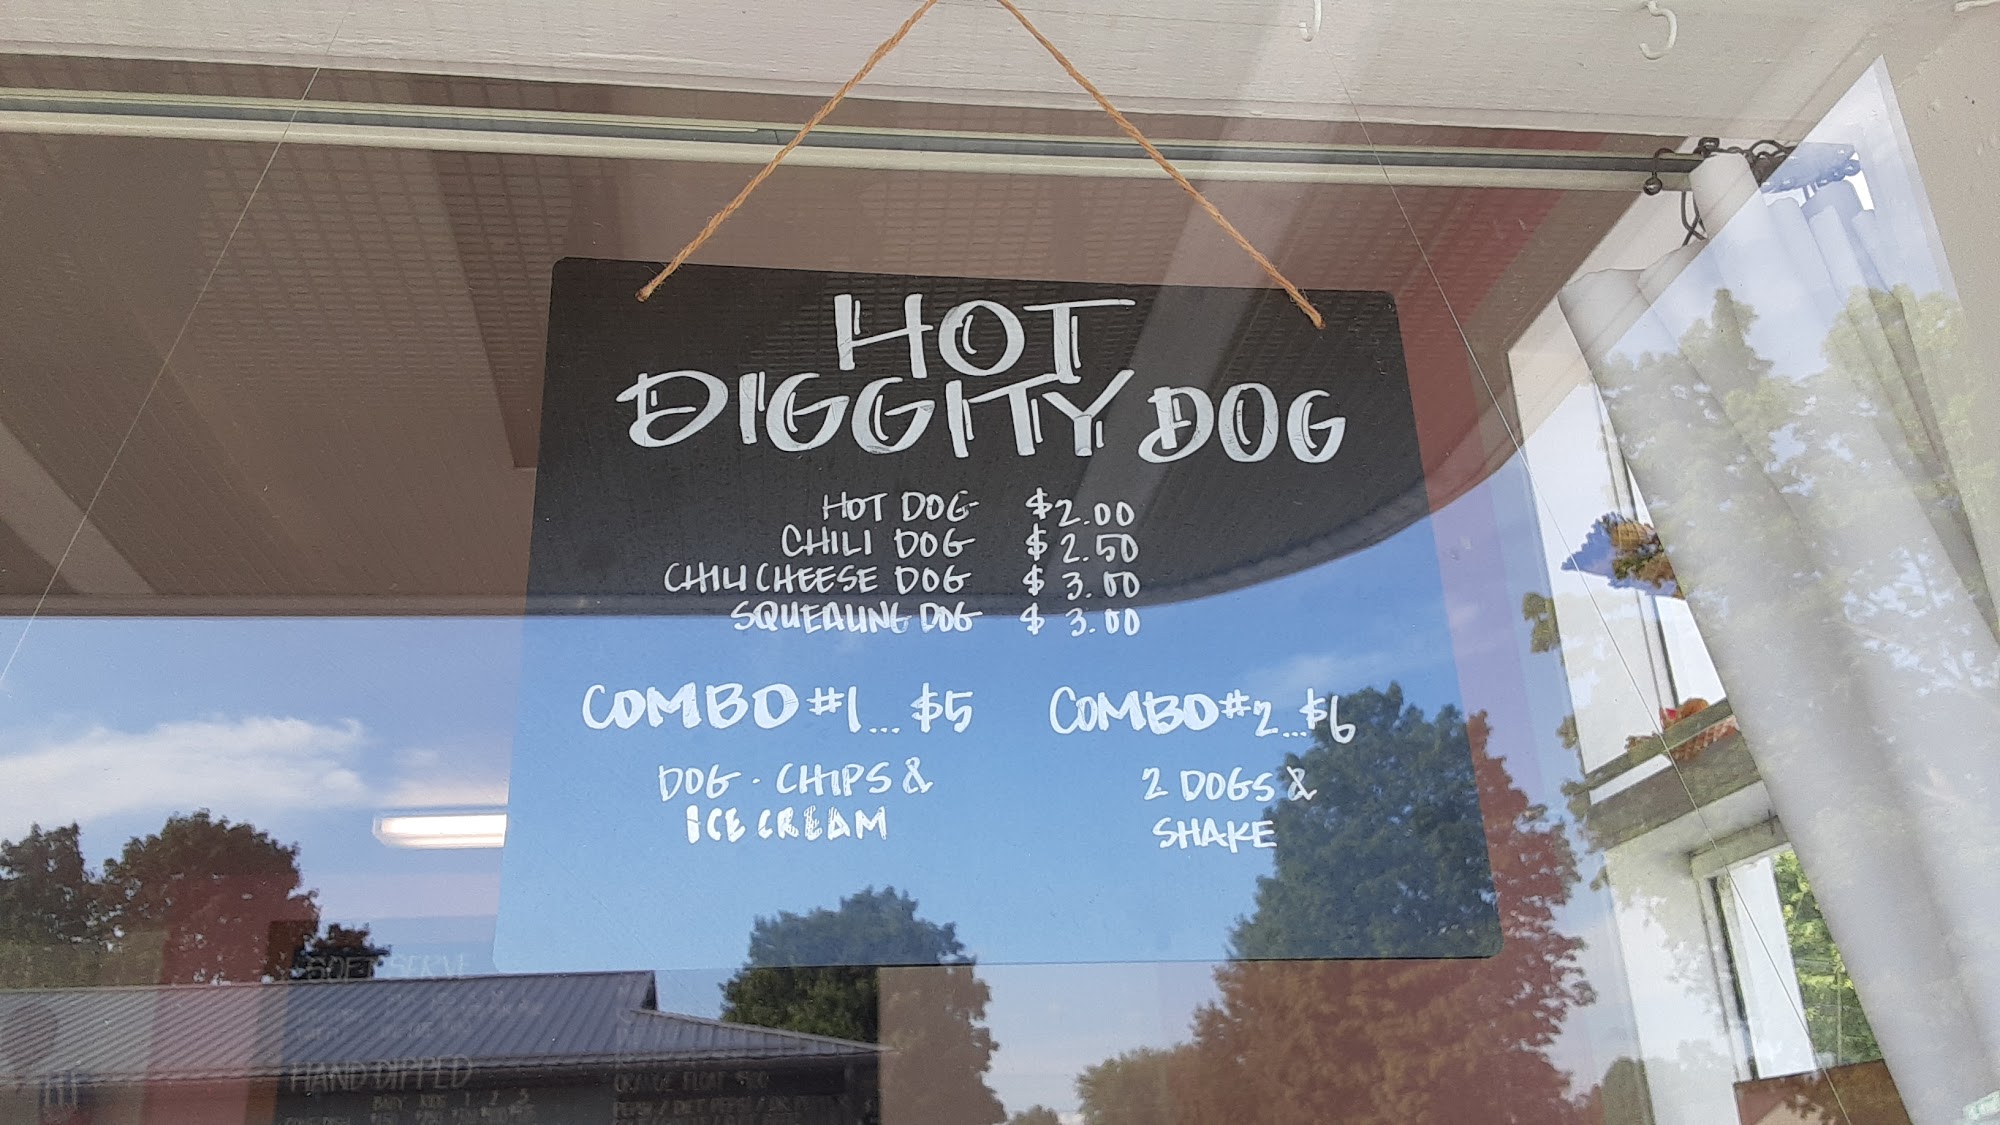 HOT
DIGGITY DOG
HOT DOG $2.00
CHILI DOG $2.50
CHILI CHEESE DOG $3.00
SQUEALING DOG $3.00
COMBO #1...$5
DOG · CHIPS &
ICE CREAM
COMBO #2...$6
2 DOGS &
SHAKE
SOFT SERVE
HAND DIPPED
BABY KIDS 1 2 3